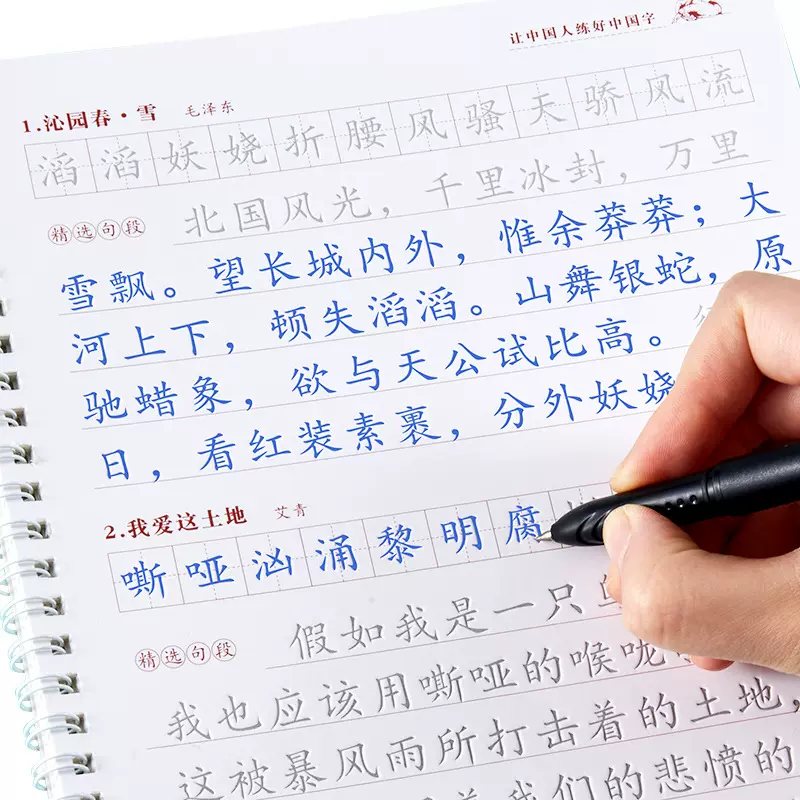 让中国人练好中国字
1.沁园春·雪 毛泽东
滔滔妖娆折腰风骚天骄风流
精选句段 北国风光，千里冰封，万里
雪飘。望长城内外，惟余莽莽；大
河上下，顿失滔滔。山舞银蛇，原
驰蜡象，欲与天公试比高。
日，看红装素裹，分外妖娆
2.我爱这土地 艾青
嘶哑汹涌黎明腐
精选句段 假如我是一只
我也应该用嘶哑的喉咙
这被暴风雨所打击着的土地，
我们的悲愤的